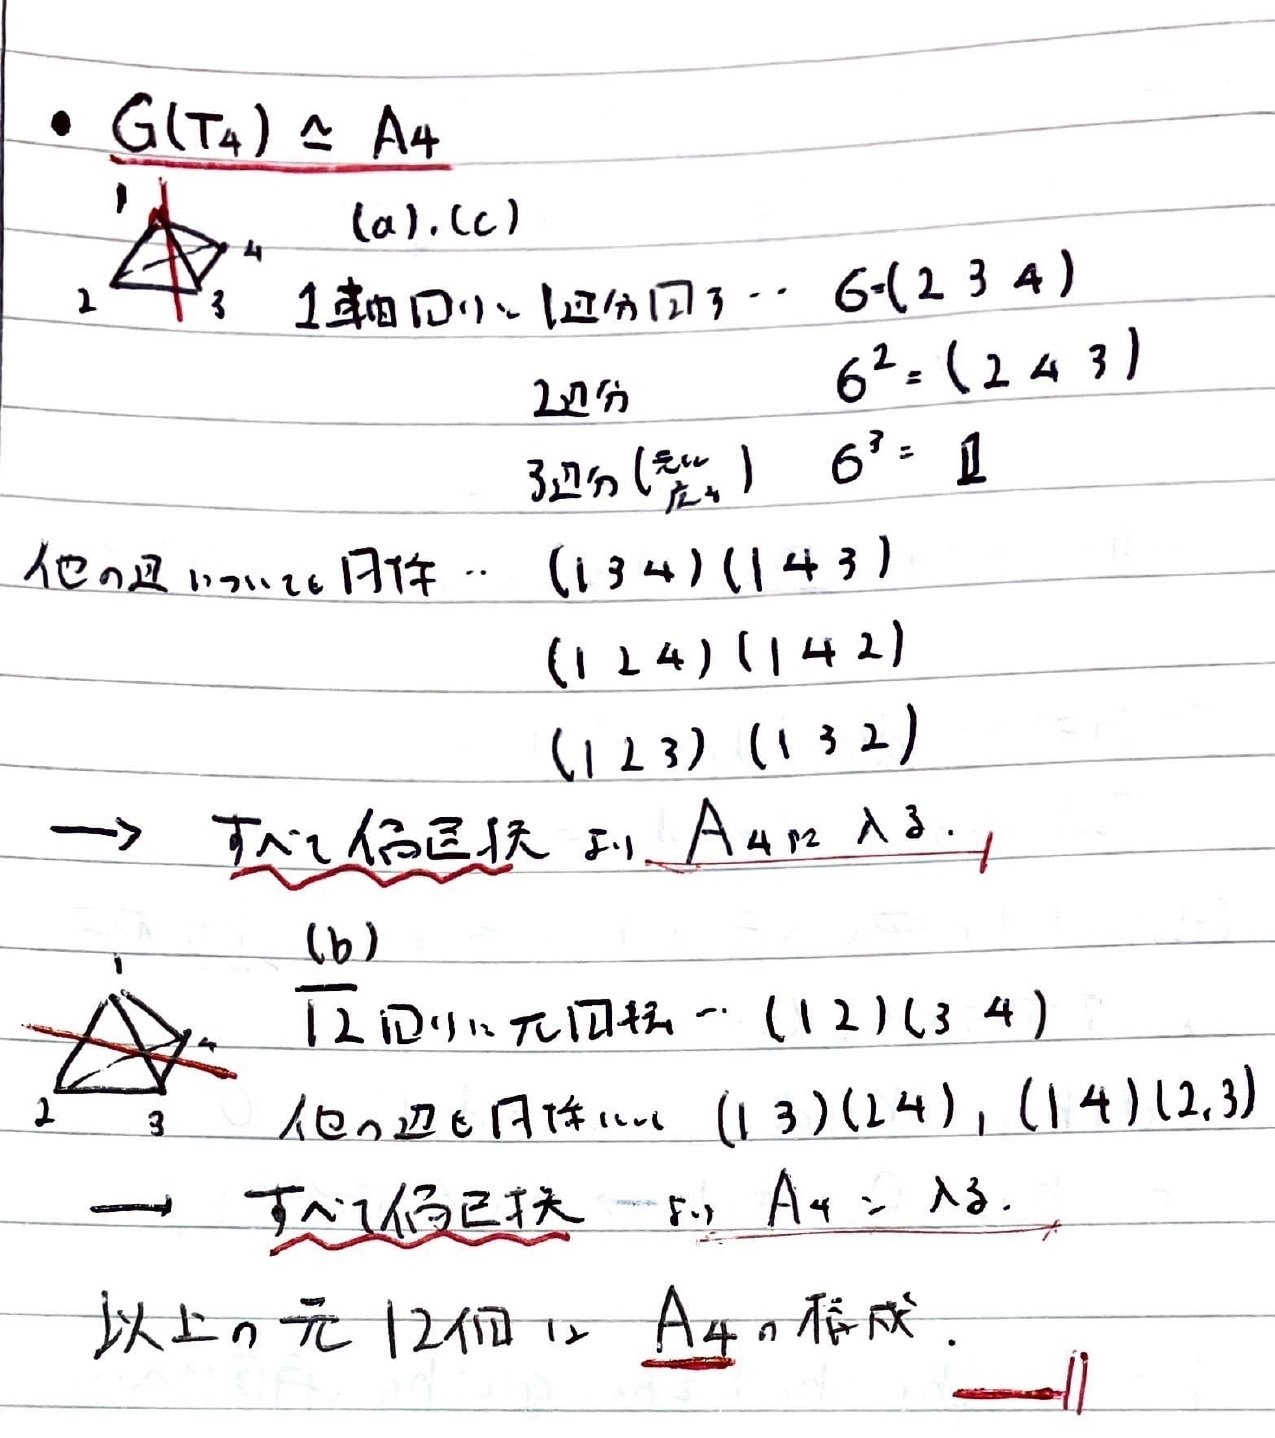 • G(T4) ≃ A4
1
4
2
3
(a).(c)
1軸回りに1辺分回る‥ σ=(2 3 4)
2辺分 σ² = (2 4 3)
3辺分(元に戻る) σ³ = 1
他の辺についても同様‥ (1 3 4)(1 4 3)
(1 2 4)(1 4 2)
(1 2 3) (1 3 2)
→ すべて偶置換 より A4に入る.
(b)
1
4
2
3
12回りにπ回転‥ (1 2)(3 4)
他の辺も同様にして (1 3)(2 4), (1 4)(2,3)
→ すべて偶置換 より A4に入る.
以上の元12個は A4の構成.